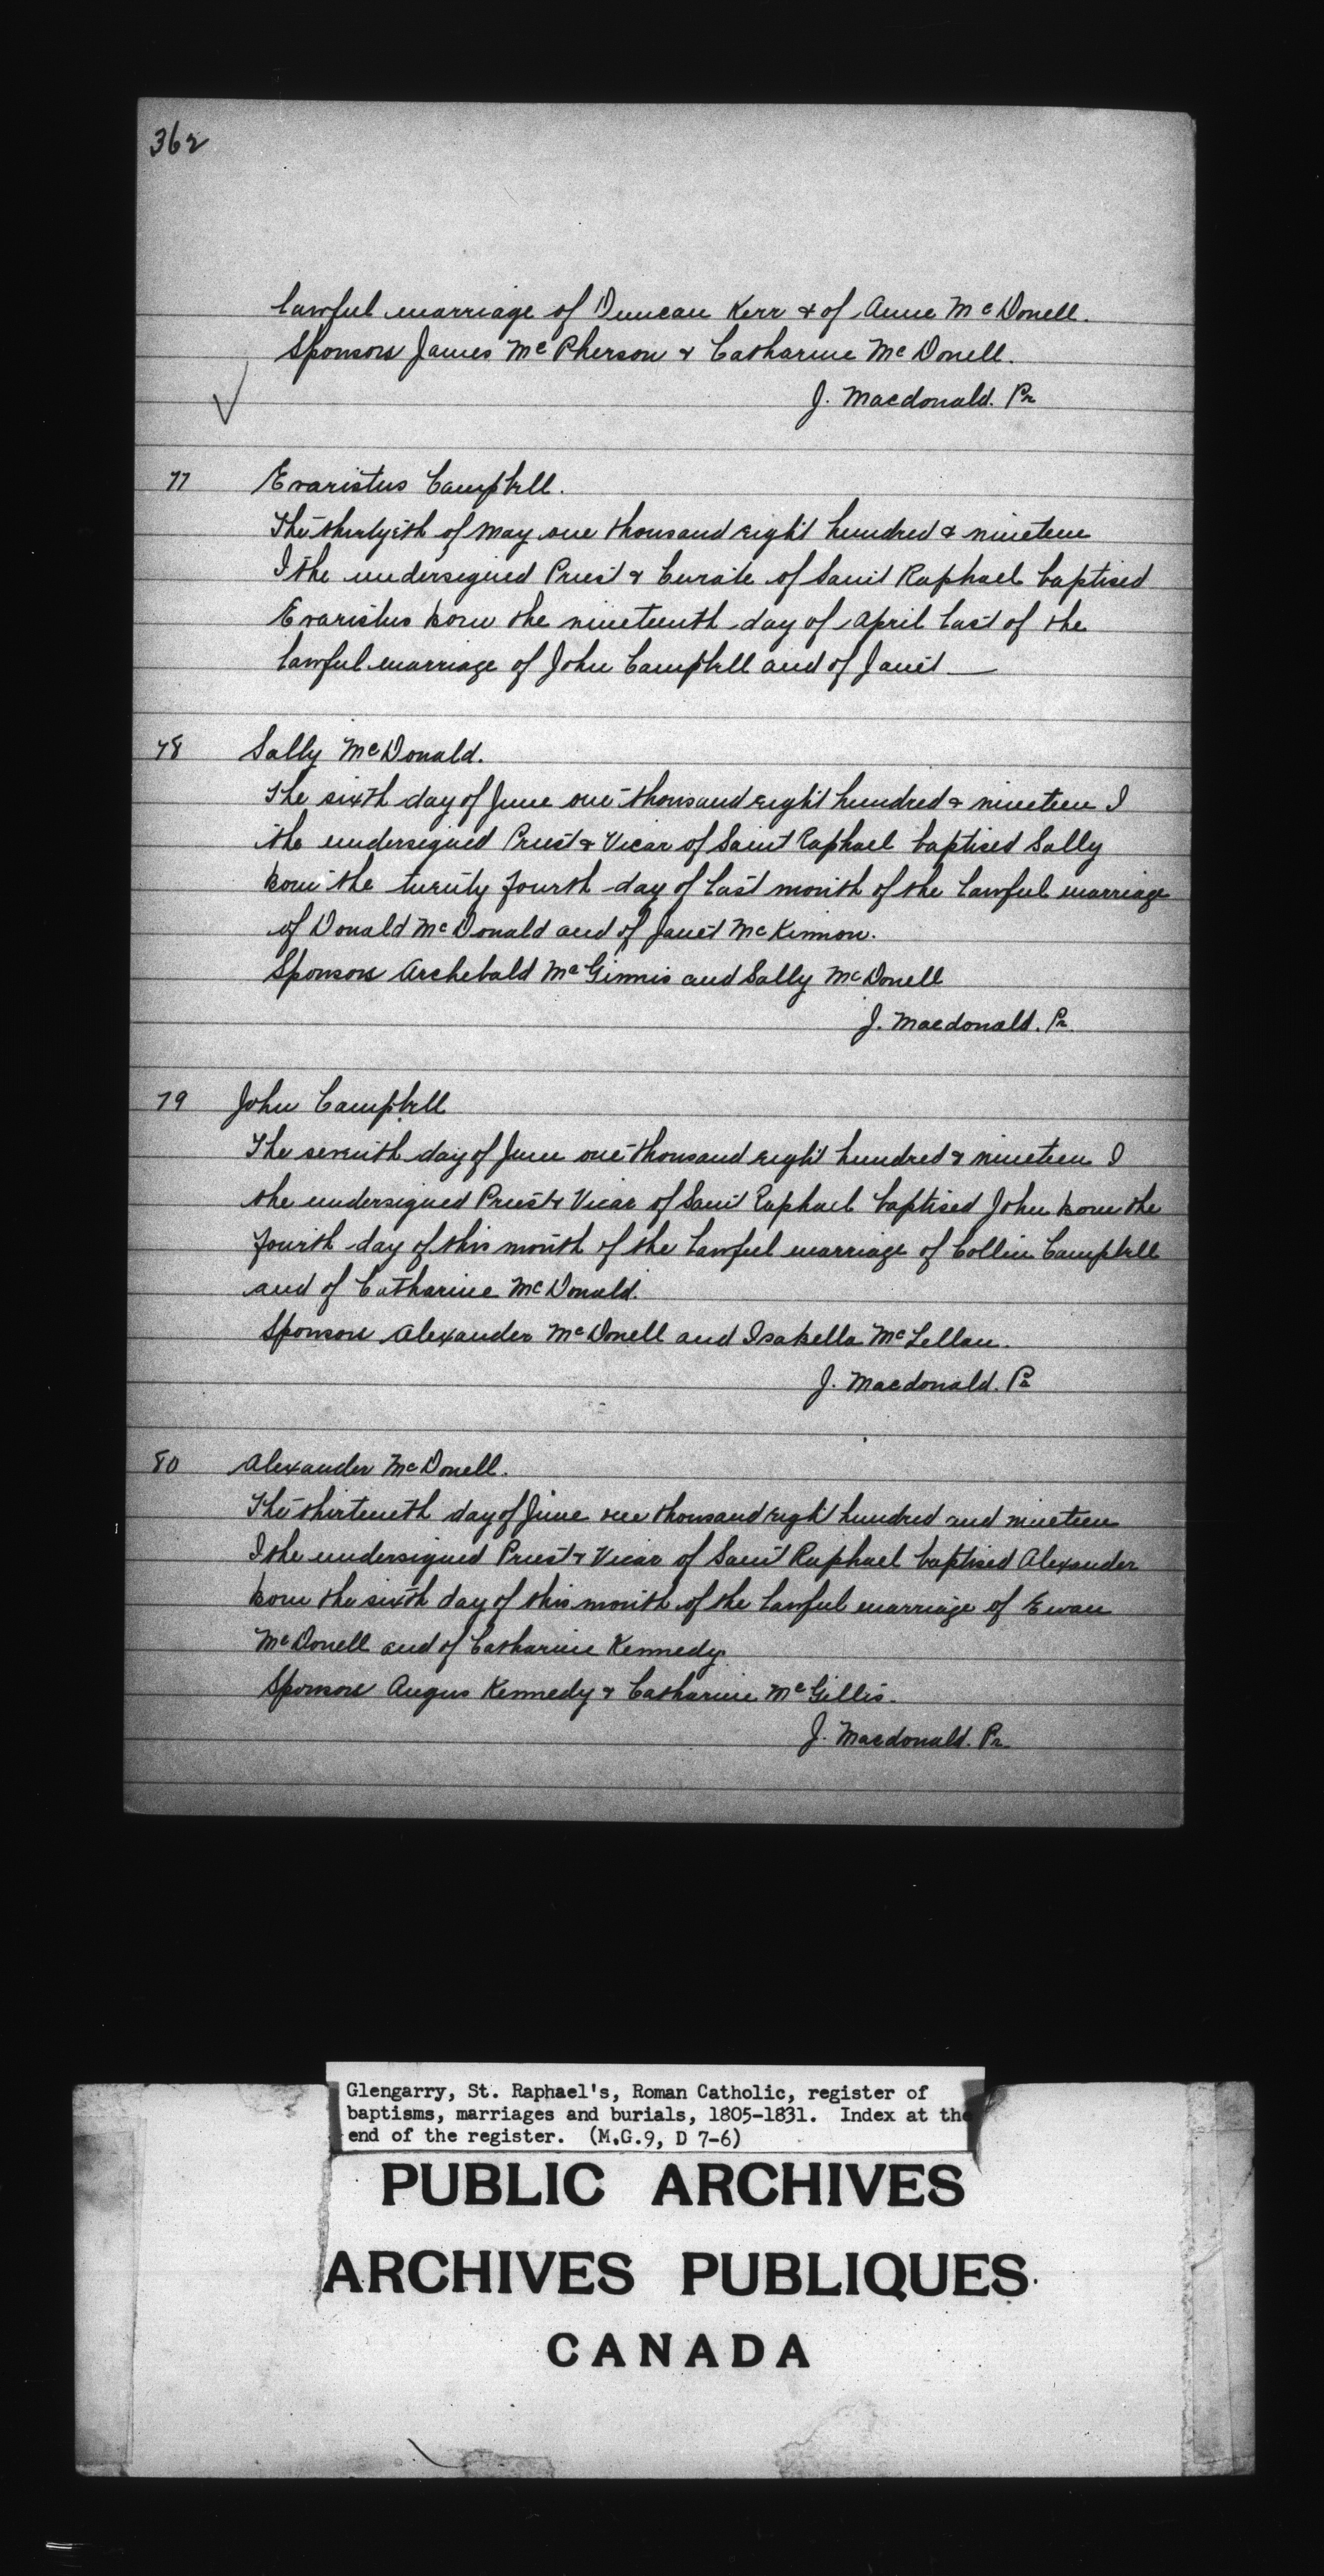 362
lawful marriage of Duncan Kerr & of Anne McDonell.
Sponsors James McPherson & Catharine McDonell.
J. Macdonald. Pr
77 Evaristus Campbell.
The thirtyeth of May one thousand eight hundred & nineteen
I the undersigned Priest & Curate of Saint Raphael baptised
Evaristus born the nineteenth day of April last of the
lawful marriage of John Campbell and of Janet —
78 Sally McDonald.
The sixth day of June one thousand eight hundred & nineteen I
the undersigned Priest & Vicar of Saint Raphael baptised Sally
born the twenty fourth day of last month of the lawful marriage
of Donald McDonald and of Janet McKinnon.
Sponsors Archebald McGinnis and Sally McDonell
J. Macdonald. Pr.
79 John Campbell
The seventh day of June one thousand eight hundred & nineteen I
the undersigned Priest & Vicar of Saint Raphael baptised John born the
fourth day of this month of the lawful marriage of Collin Campbell
and of Catharine McDonald.
Sponsors Alexander McDonell and Isabella McLellan.
J. Macdonald. Pr
80 Alexander McDonell.
The thirteenth day of June one thousand eight hundred and nineteen
I the undersigned Priest & Vicar of Saint Raphael baptised Alexander
born the sixth day of this month of the lawful marriage of Ewan
McDonell and of Catharine Kennedy.
Sponsors Angus Kennedy & Catharine McGillis.
J. Macdonald. Pr.
Glengarry, St. Raphael's, Roman Catholic, register of
baptisms, marriages and burials, 1805-1831. Index at the
end of the register. (M.G.9, D 7-6)
PUBLIC ARCHIVES
ARCHIVES PUBLIQUES
CANADA